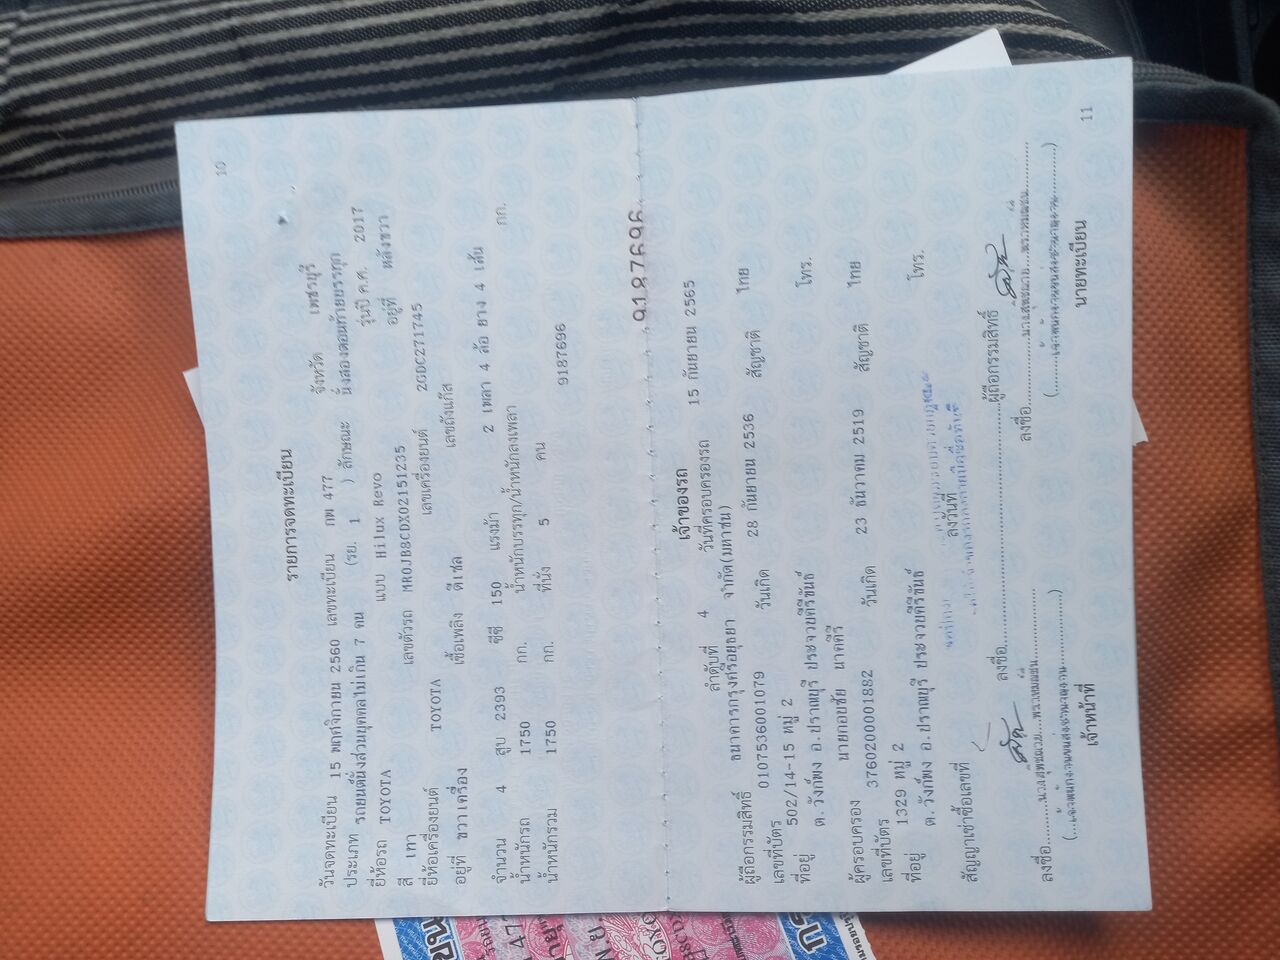 10
รายการจดทะเบียน
วันจดทะเบียน 15 พฤศจิกายน 2560 เลขทะเบียน กพ 477 จังหวัด เพชรบุรี
ประเภท รถยนต์นั่งส่วนบุคคลไม่เกิน 7 คน (รย. 1 ) ลักษณะ นั่งสองตอนท้ายบรรทุก
ยี่ห้อรถ TOYOTA แบบ Hilux Revo รุ่นปี ค.ศ. 2017
สี เทา เลขตัวรถ MR0JB8CDX02151235 อยู่ที่ หลังขวา
ยี่ห้อเครื่องยนต์ TOYOTA เลขเครื่องยนต์ 2GDC271745
อยู่ที่ ขวาเครื่อง เชื้อเพลิง ดีเซล เลขถังแก๊ส
จำนวน 4 สูบ 2393 ซีซี 150 แรงม้า 2 เพลา 4 ล้อ ยาง 4 เส้น
น้ำหนักรถ 1750 กก. น้ำหนักบรรทุก/น้ำหนักลงเพลา กก.
น้ำหนักรวม 1750 กก. ที่นั่ง 5 คน
9187696
9187696
เจ้าของรถ
ลำดับที่ 4 วันที่ครอบครองรถ 15 กันยายน 2565
ผู้ถือกรรมสิทธิ์ ธนาคารกรุงศรีอยุธยา จำกัด(มหาชน)
เลขที่บัตร 0107536001079 วันเกิด 28 กันยายน 2536 สัญชาติ ไทย
ที่อยู่ 502/14-15 หมู่ 2
ต.วังก์พง อ.ปราณบุรี ประจวบคีรีขันธ์ โทร.
ผู้ครอบครอง นายกอบชัย นาคคีรี
เลขที่บัตร 3760200001882 วันเกิด 23 ธันวาคม 2519 สัญชาติ ไทย
ที่อยู่ 1329 หมู่ 2
ต.วังก์พง อ.ปราณบุรี ประจวบคีรีขันธ์ โทร.
สัญญาเช่าซื้อเลขที่ ลงวันที่
ลงชื่อ ผู้ถือกรรมสิทธิ์
ลงชื่อ
ลงชื่อ
เจ้าหน้าที่ นายทะเบียน
11